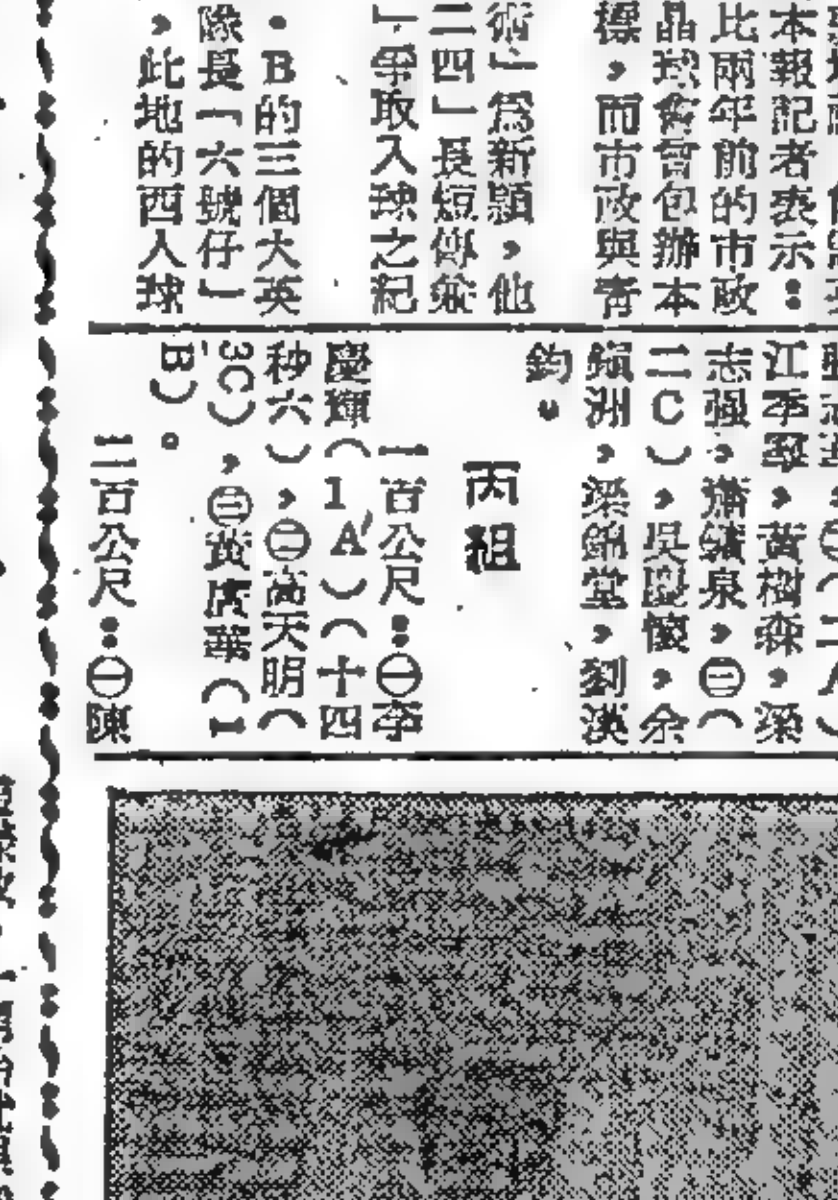 本報記者表示：
比兩年前的市政
晶球會曾包辦本
標，而市政與青
術」為新穎，他
二四」長短傳縱
」爭取入球之紀
．B的三個大英
隊長「六號仔」
，此地的西人球
江季羣，黃樹森，梁
志强，蕭鏡泉，㊂（
二C），吳慶懷，余
鎮洲，梁錦堂，劉漢
鈞。
丙組
一百公尺：㊀李
慶輝（1A）（十四
秒六），㊁高天明（
3C），㊂黃廣華（1
B）。
二百公尺：㊀陳